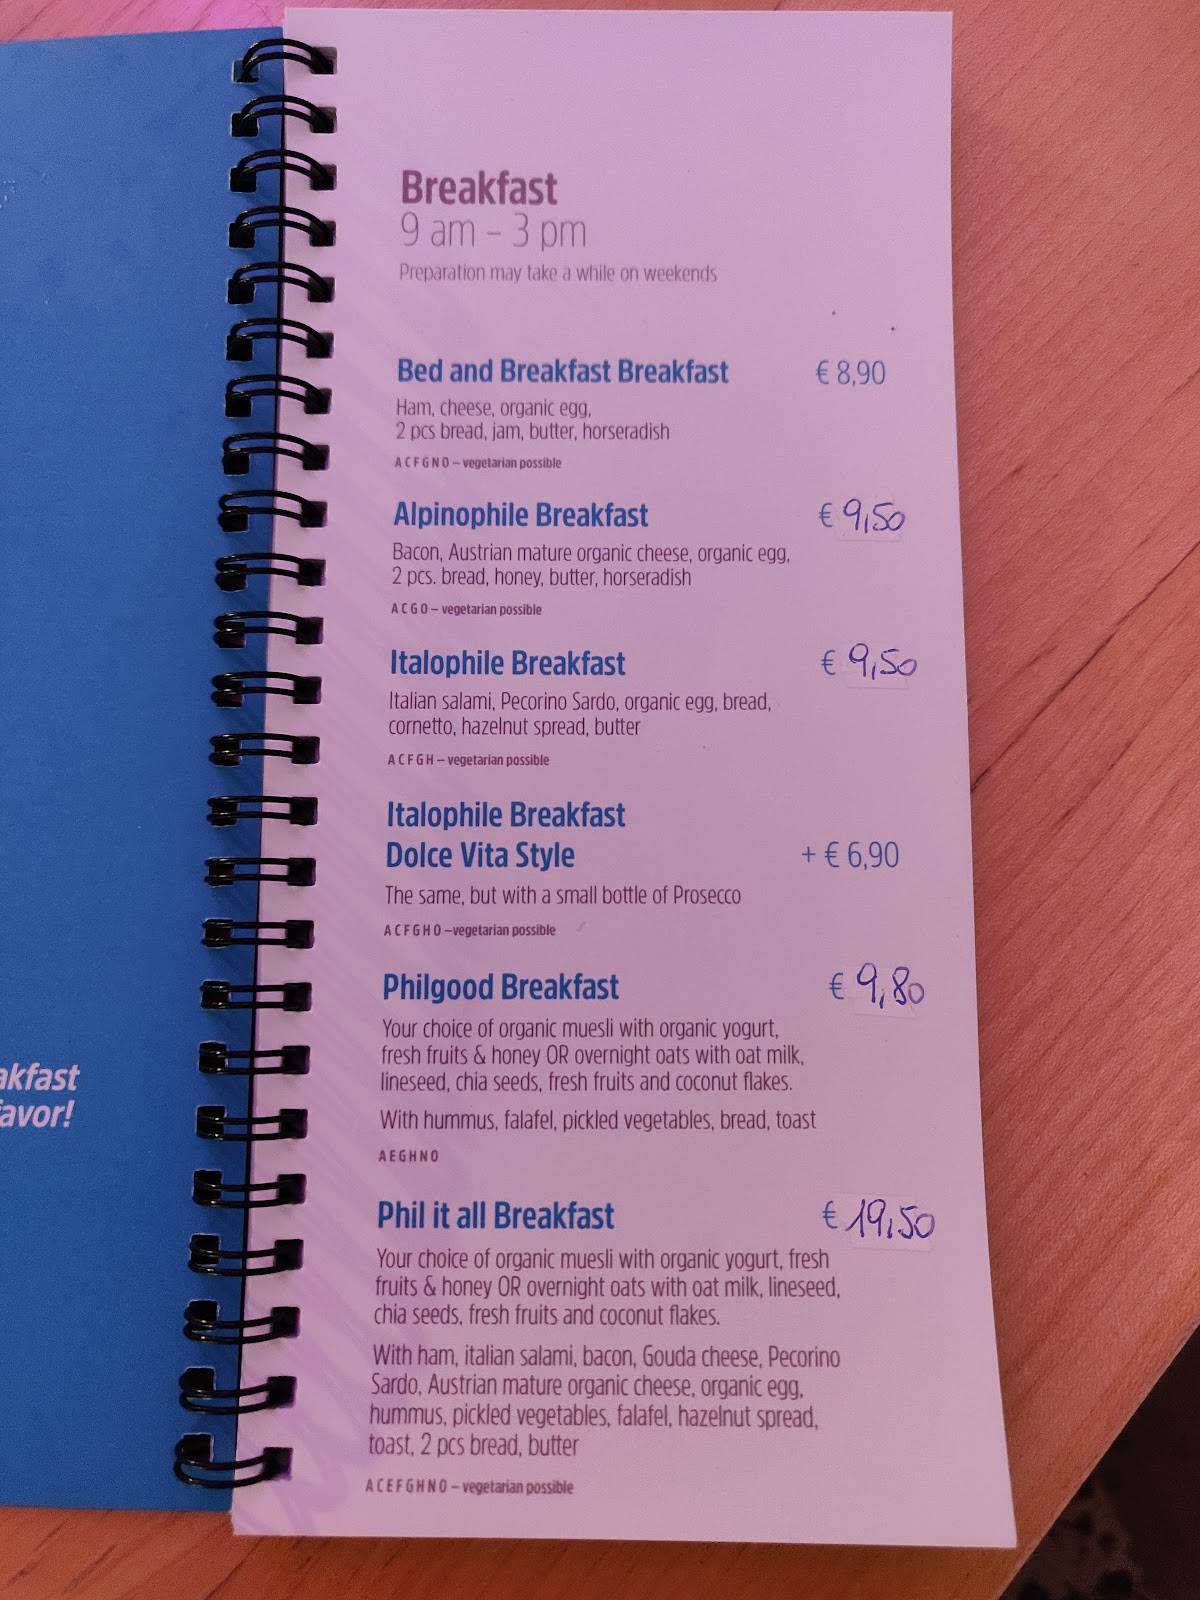 Breakfast
9 am – 3 pm
Preparation may take a while on weekends
Bed and Breakfast Breakfast € 8,90
Ham, cheese, organic egg,
2 pcs bread, jam, butter, horseradish
A C F G N O – vegetarian possible
Alpinophile Breakfast € 9,50
Bacon, Austrian mature organic cheese, organic egg,
2 pcs. bread, honey, butter, horseradish
A C G O – vegetarian possible
Italophile Breakfast € 9,50
Italian salami, Pecorino Sardo, organic egg, bread,
cornetto, hazelnut spread, butter
A C F G H – vegetarian possible
Italophile Breakfast
Dolce Vita Style + € 6,90
The same, but with a small bottle of Prosecco
A C F G H O –vegetarian possible
Philgood Breakfast € 9,80
Your choice of organic muesli with organic yogurt,
fresh fruits & honey OR overnight oats with oat milk,
lineseed, chia seeds, fresh fruits and coconut flakes.
With hummus, falafel, pickled vegetables, bread, toast
A E G H N O
Phil it all Breakfast € 19,50
Your choice of organic muesli with organic yogurt, fresh
fruits & honey OR overnight oats with oat milk, lineseed,
chia seeds, fresh fruits and coconut flakes.
With ham, italian salami, bacon, Gouda cheese, Pecorino
Sardo, Austrian mature organic cheese, organic egg,
hummus, pickled vegetables, falafel, hazelnut spread,
toast, 2 pcs bread, butter
A C E F G H N O – vegetarian possible
akfast
avor!